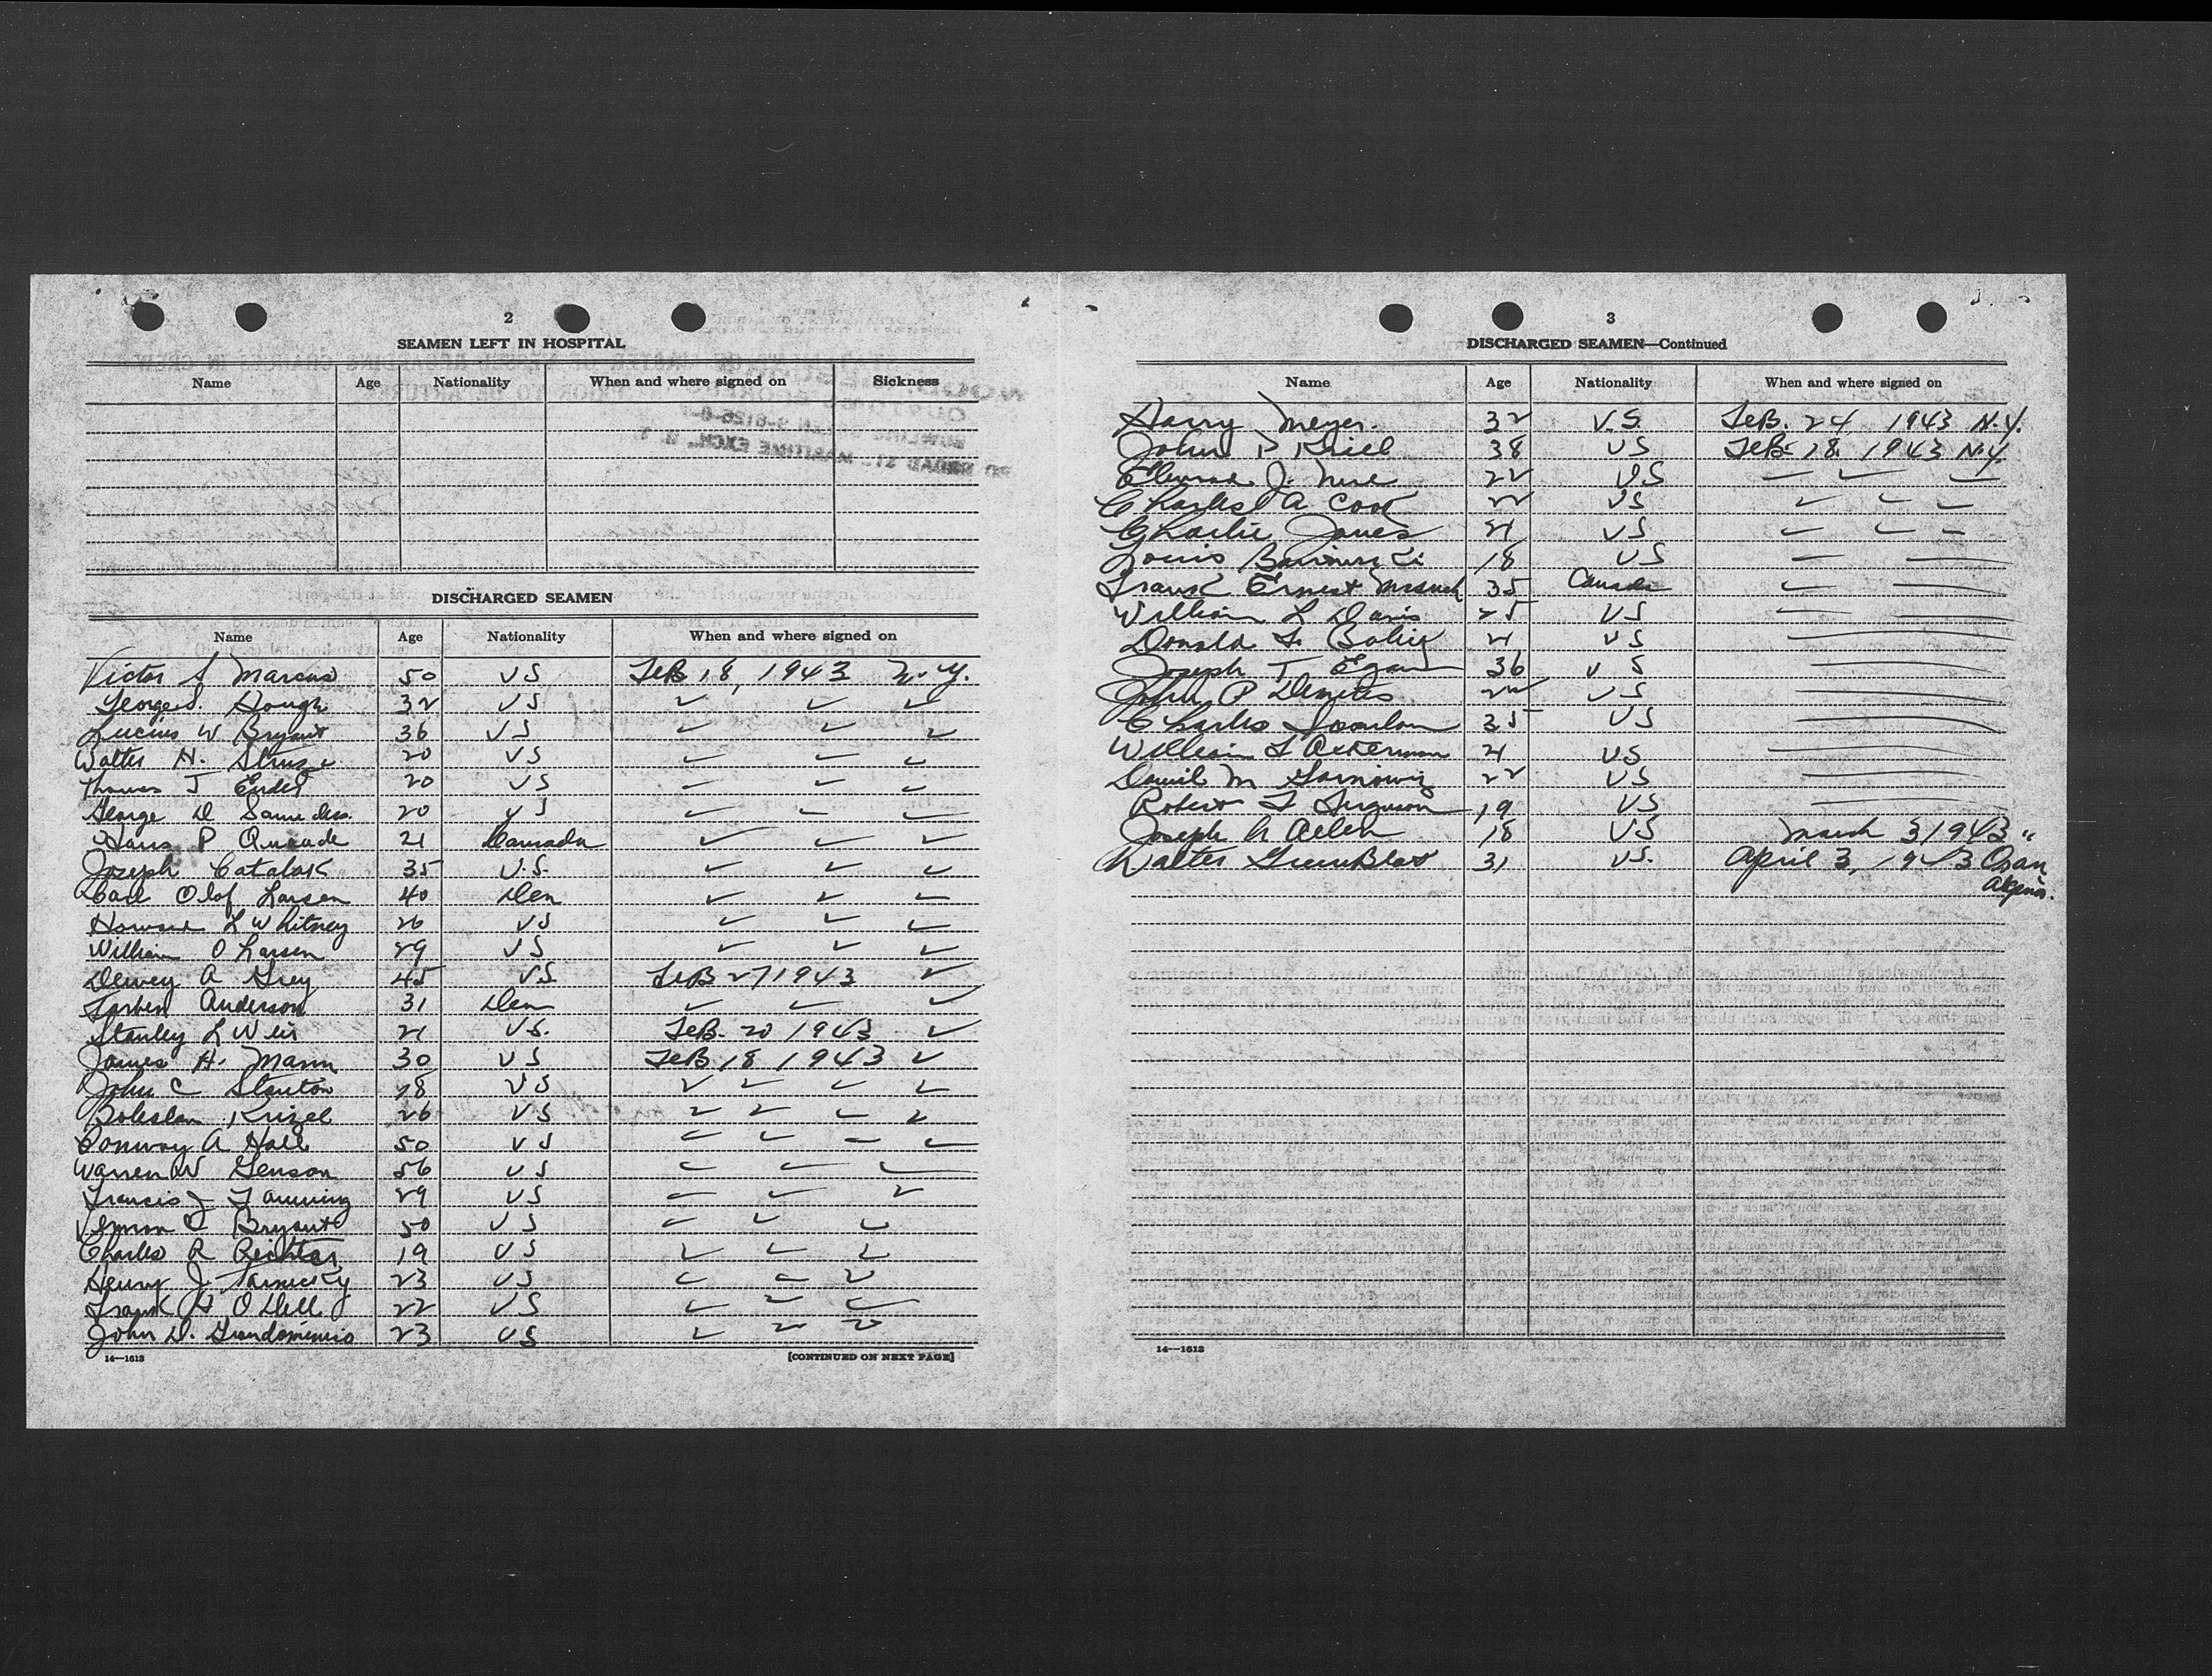 2
SEAMEN LEFT IN HOSPITAL
Name Age Nationality When and where signed on Sickness
DISCHARGED SEAMEN
Name Age Nationality When and where signed on
Victor S Marcus 50 US FeB 18, 1943 N.Y.
George S. Hough 32 US ✓ ✓ ✓
Lucius W Bryant 36 US ✓ ✓ ✓
Walter H. 20 US ✓ ✓ ✓
Thomas J Ender 20 US ✓ ✓ ✓
George D Saunders. 20 US ✓ ✓ ✓
Hans P 21 Canada ✓ ✓ ✓
Joseph Catalak 35 U.S. ✓ ✓ ✓
Carl Olof Larsen 40 Den ✓ ✓ ✓
Howard L Whitney 26 US ✓ ✓ ✓
William O Larsen 29 US ✓ ✓ ✓
Dewey A Grey 45 US FeB 27 1943 ✓
Torben Anderson 31 Den ✓ ✓ ✓
Stanley L Weir 21 US. FeB. 20 1943 ✓
James H. Mann 30 US FeB 18 1943 ✓
John C Stanton 18 US ✓ ✓ ✓ ✓
Boleslaw Krizel 26 US ✓ ✓ ✓ ✓
Conway A Hall 50 US ✓ ✓ ✓ ✓
Warren W Genson 56 US ✓ ✓ ✓
Francis J Fanning 29 US ✓ ✓ ✓
Vernon C Bryant 50 US ✓ ✓ ✓
Charles R Richter 19 US ✓ ✓ ✓
Henry J Tarnecky 23 US ✓ ✓ ✓
Frank H O Dell 22 US ✓ ✓ ✓
John D. Grandominico 23 US ✓ ✓ ✓
14—1613 [CONTINUED ON NEXT PAGE]
3
DISCHARGED SEAMEN—Continued
Name Age Nationality When and where signed on
Harry Meyer. 32 U.S. FeB. 24 1943 N.Y.
John P Kriel 38 US FeB. 18. 1943 N.Y.
J. 22 US
Charles A Cook 22 US ✓
Charlie Jones 21 US
Louis 18 US
Frank Ernest 35 Canada
William L Davis 25 US
Donald F. 21 US
Joseph T Egan 36 US
John P 22 US
Charles 35 US
William F Ackerman 21 US
Daniel M 22 US
Robert F Ferguson 19 US
Joseph A Allen 18 US March 3 1943 "
Walter GreenBlat 31 US. April 3, 1943 Oran
Algeria.
14—1613